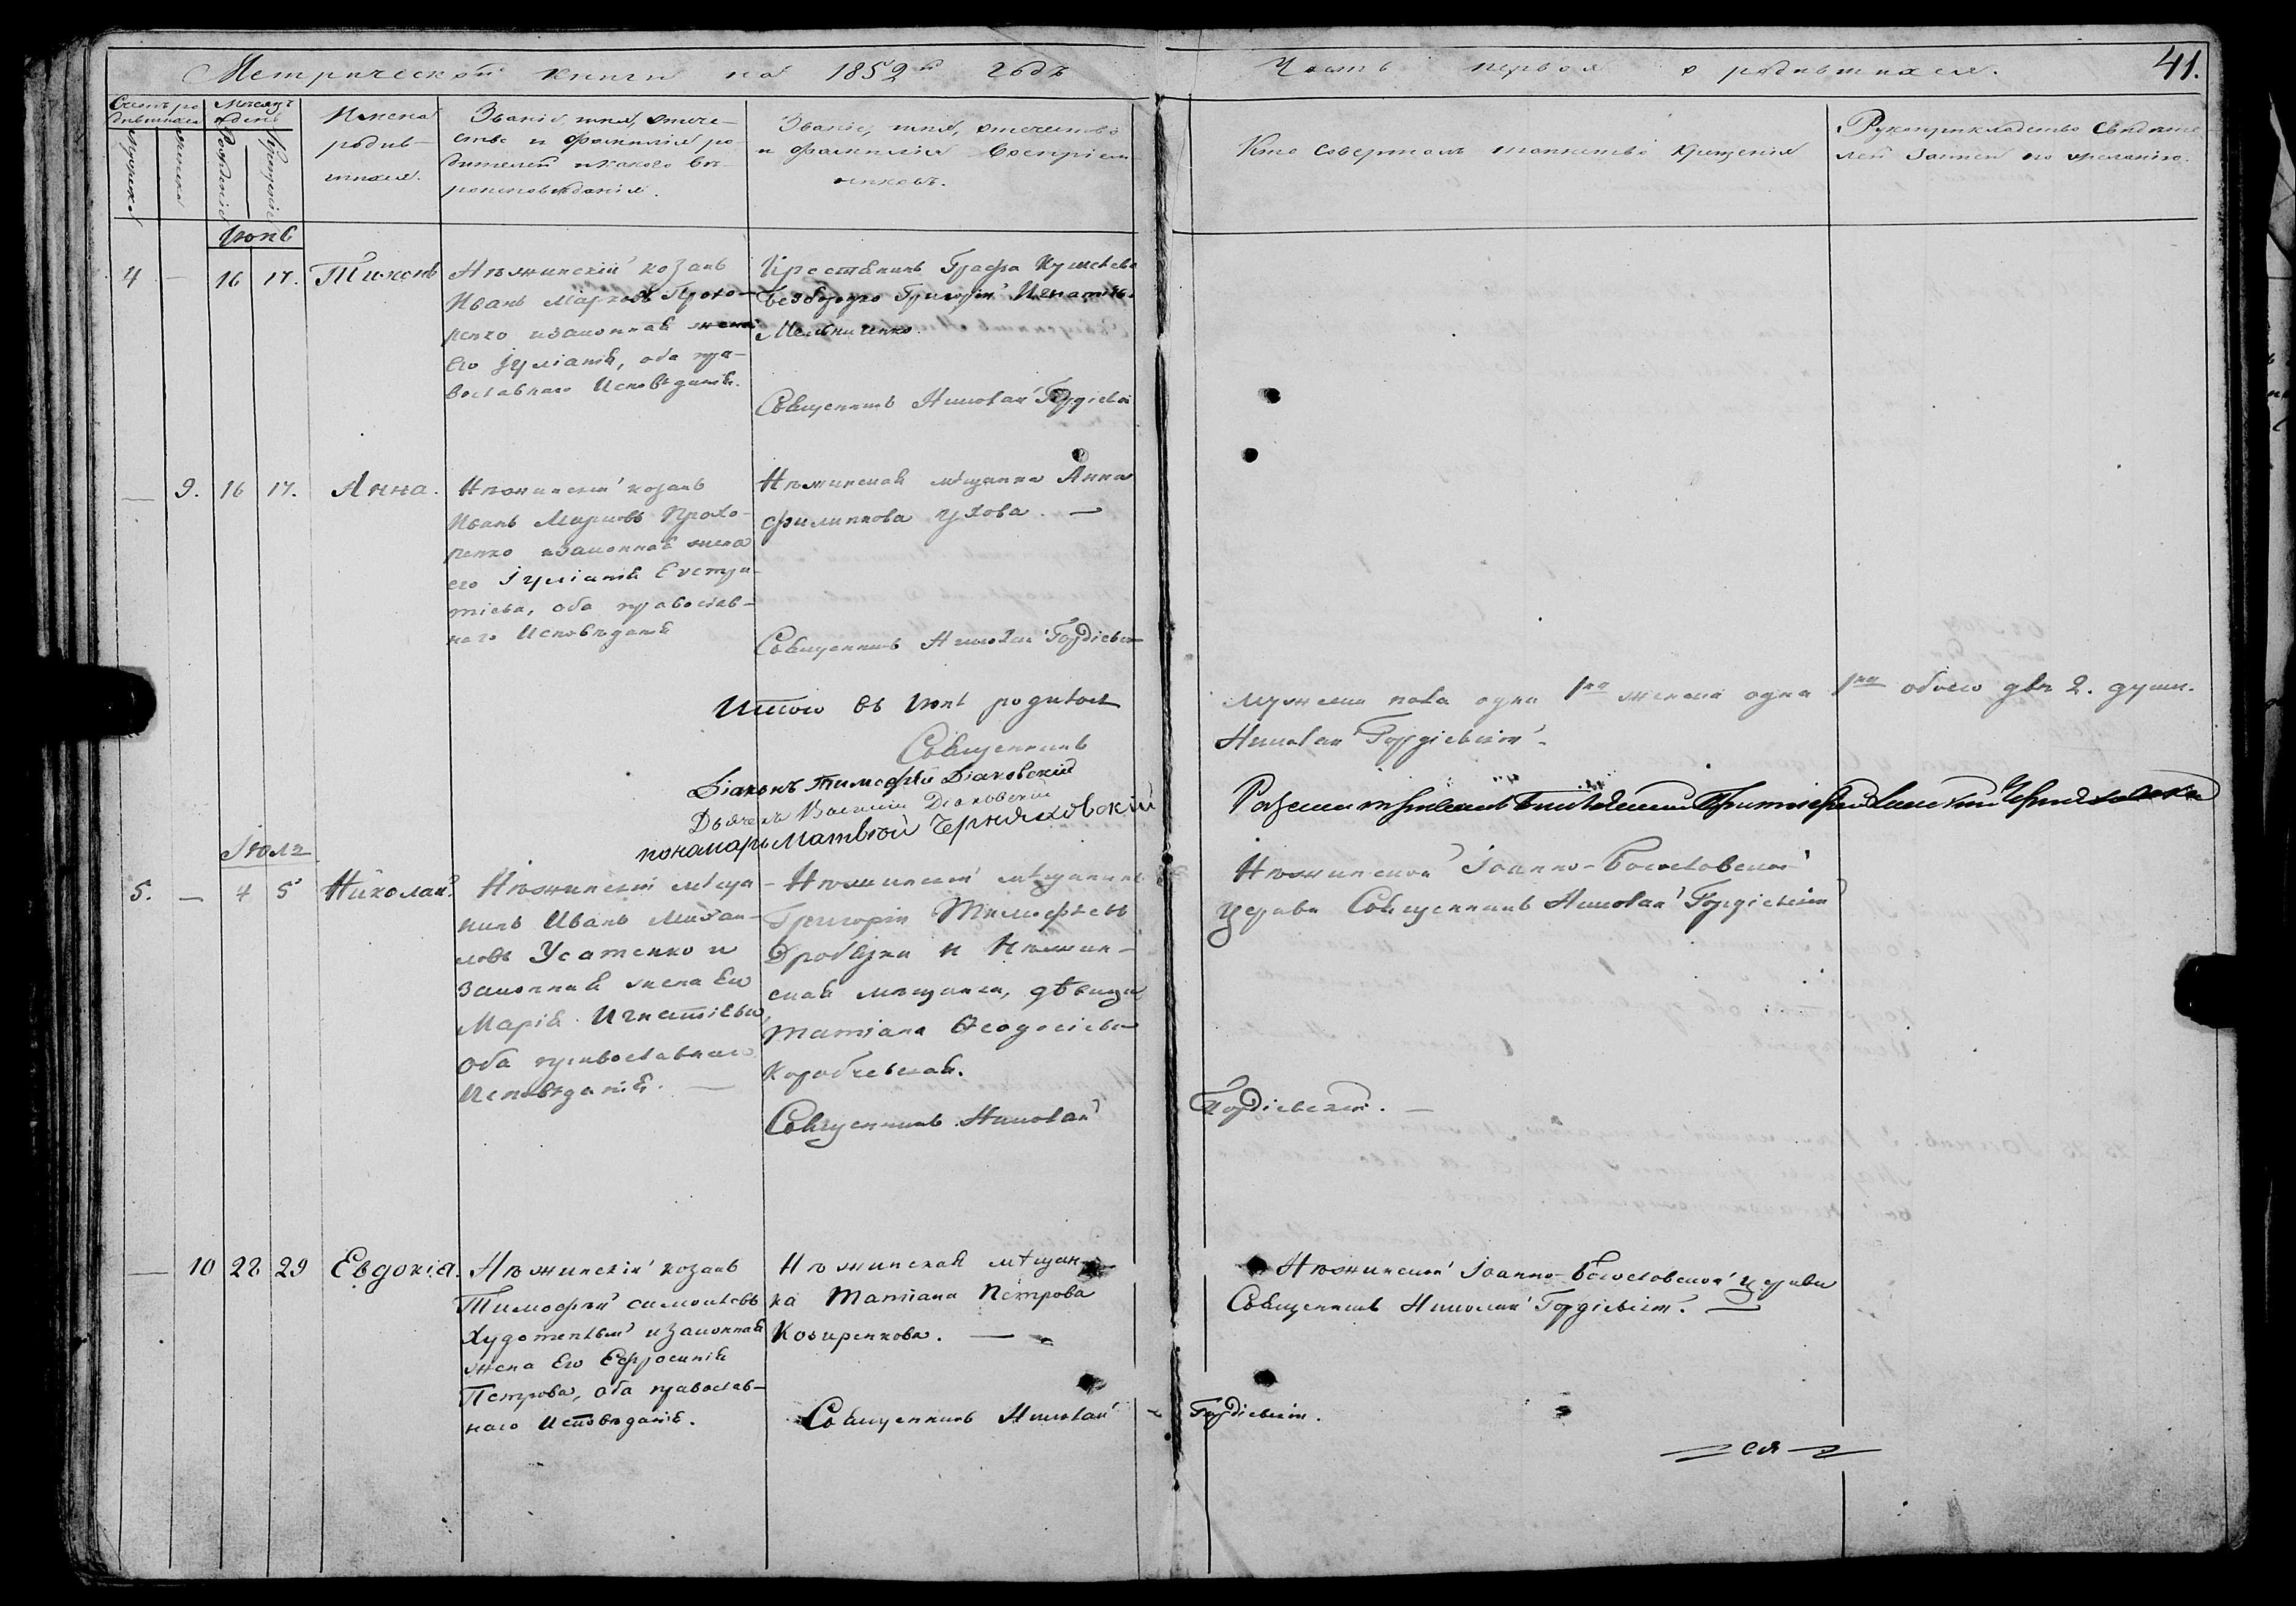 Метрической книги на 1852й годъ
Часть первая о родившихся.
41.
Счетъ родившихся
Мѣсяцъ и день
Имена родившихся.
Званіе, имя, отечество и фамилія родителей и какого вѣроисповѣданія.
Званіе, имя, отечество и фамилія воспріемниковъ.
Кто совершалъ таинство крещенія
Рукоприкладство свидѣтелей записи по желанію.
мужеска
женска
Рожденія
Крещенія
Іюнь
4 — 16 17. Тихонъ
Нѣжинскій козакъ
Иванъ Марковъ Прохо-
ренко и законная жена
его Іуліанія, оба пра-
вославнаго Исповѣданія.
Крестьянинъ Графа Кушелева
Безбородко Григорій Игнатіевъ
Мельниченко.
Священникъ Николай Гордіевскій
— 9. 16 17. Анна.
Нѣжинскій козакъ
Иванъ Марковъ Прохо-
ренко и законная жена
его Іуліанія Евстра-
тіева, оба православ-
наго Исповѣданія
Нѣжинская мѣщанка Анна
Филиппова
Священникъ Николай Гордіевскій
Итого въ Іюнѣ родилось
мужеска пола одна 1на женска одна 1на обоего двѣ 2. души.
Священникъ
Николай Гордіевскій.
Діаконъ Тимофей Діаковскій
Дьячекъ Василій Діаковскій
пономарь Матвѣй Черняховскій
Іюль
5. — 4 5 Николай
Нѣжинскій мѣща-
нинъ Иванъ Михаи-
ловъ Усатенко и
законная жена его
Марія Игнатіева
оба православнаго
Исповѣданія. —
Нѣжинскій мѣщанинъ
Григорій Тимофѣевъ
и Нѣжин-
ская мѣщанка, дѣвица
Татіана Ѳеодосіева
Коробчевская.
Священникъ Николай
Гордіевскій. —
Нѣжинской Іоанно-Богословской
церкви Священникъ Николай Гордіевскій
— 10 28 29 Евдокія.
Нѣжинскій козакъ
Тимофей Симоновъ
и законная
жена его Ефросинія
Петрова, оба православ-
наго Исповѣданія.
Нѣжинская мѣщан-
ка Татіана Петрова
Козиренкова. —
Священникъ Николай
Гордіевскій.
Нѣжинской Іоанно-Богословской церкви
Священникъ Николай Гордіевскій. —
ся